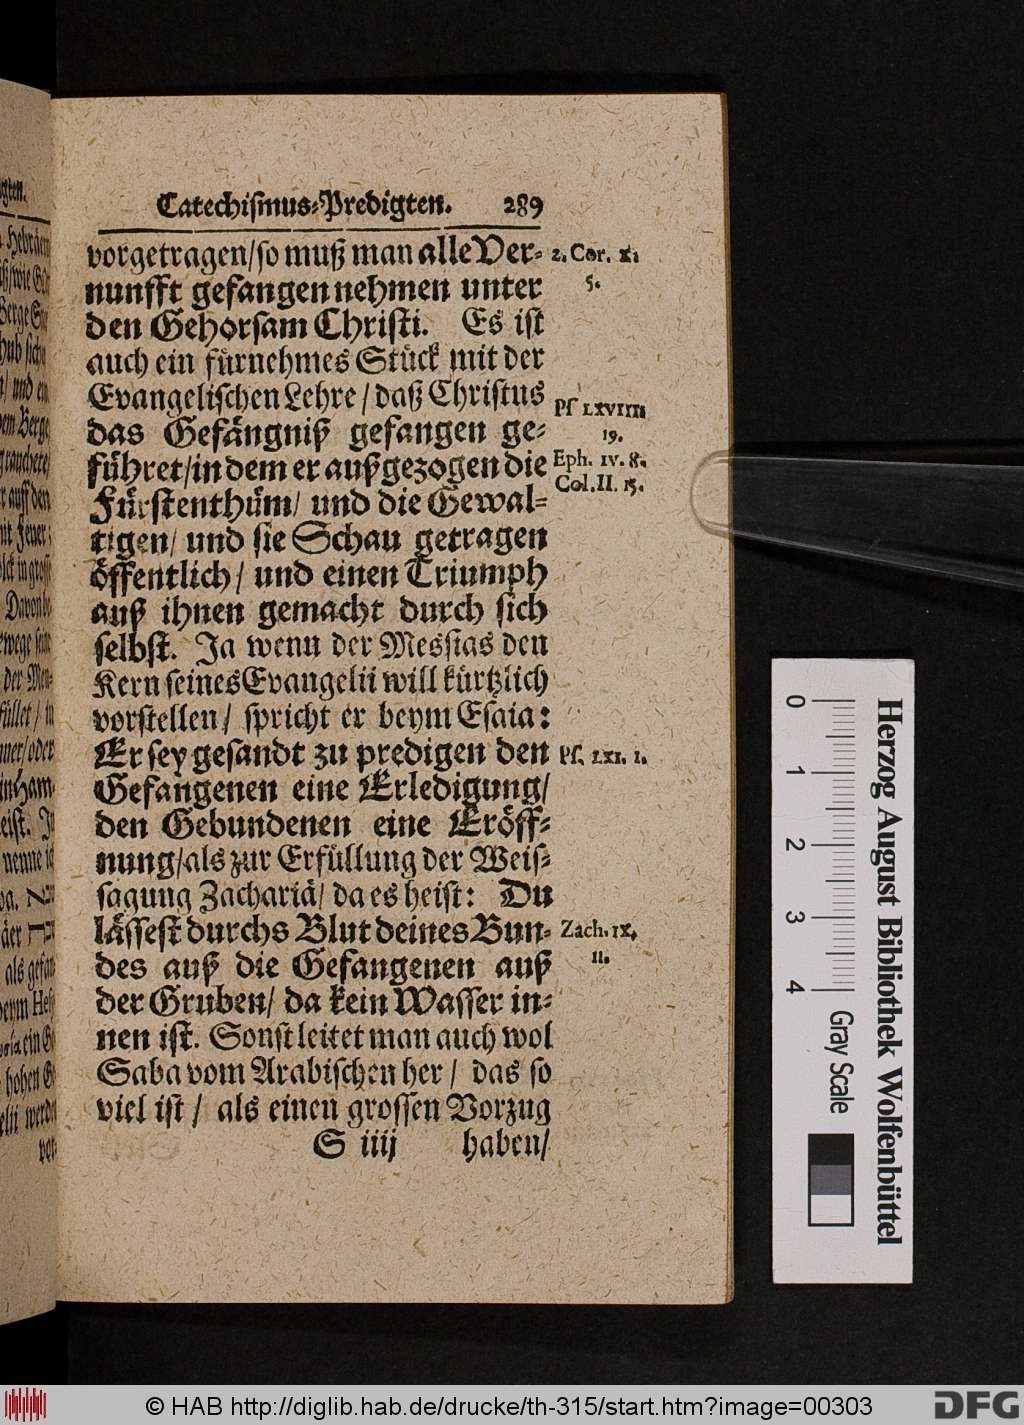 Catechiſmus-Predigten. 289
vorgetragen/ſo muß man alle Ver-
nunfft gefangen nehmen unter
den Gehorſam Chriſti. Es iſt
auch ein fürnehmes Stück mit der
Evangeliſchen Lehre / daß Chriſtus
das Gefängniß gefangen ge-
führet/in dem er außgezogen die
Fürſtenthüm/ und die Gewal-
tigen/ und ſie Schau getragen
öffentlich/ und einen Triumph
auß ihnen gemacht durch ſich
ſelbſt. Ja wenn der Meſſias den
Kern ſeines Evangelii will kürtzlich
vorſtellen/ ſpricht er beym Eſaia:
Er ſey geſandt zu predigen den
Gefangenen eine Erledigung/
den Gebundenen eine Eröff-
nung/als zur Erfüllung der Weiſ-
ſagung Zachariä/ da es heiſt: Du
läſſeſt durchs Blut deines Bun-
des auß die Gefangenen auß
der Gruben/ da kein Waſſer in-
nen iſt. Sonſt leitet man auch wol
Saba vom Arabiſchen her / das ſo
viel iſt / als einen groſſen Vorzug
S iiij haben/
2. Cor. X.
5.
Pſ LXVIII
19.
Eph. IV. 8.
Col. II. 15.
Pſ. LXI. 1.
Zach. IX.
11.
0 1 2 3 4 Gray Scale
Herzog August Bibliothek Wolfenbüttel
© HAB http://diglib.hab.de/drucke/th-315/start.htm?image=00303
DFG